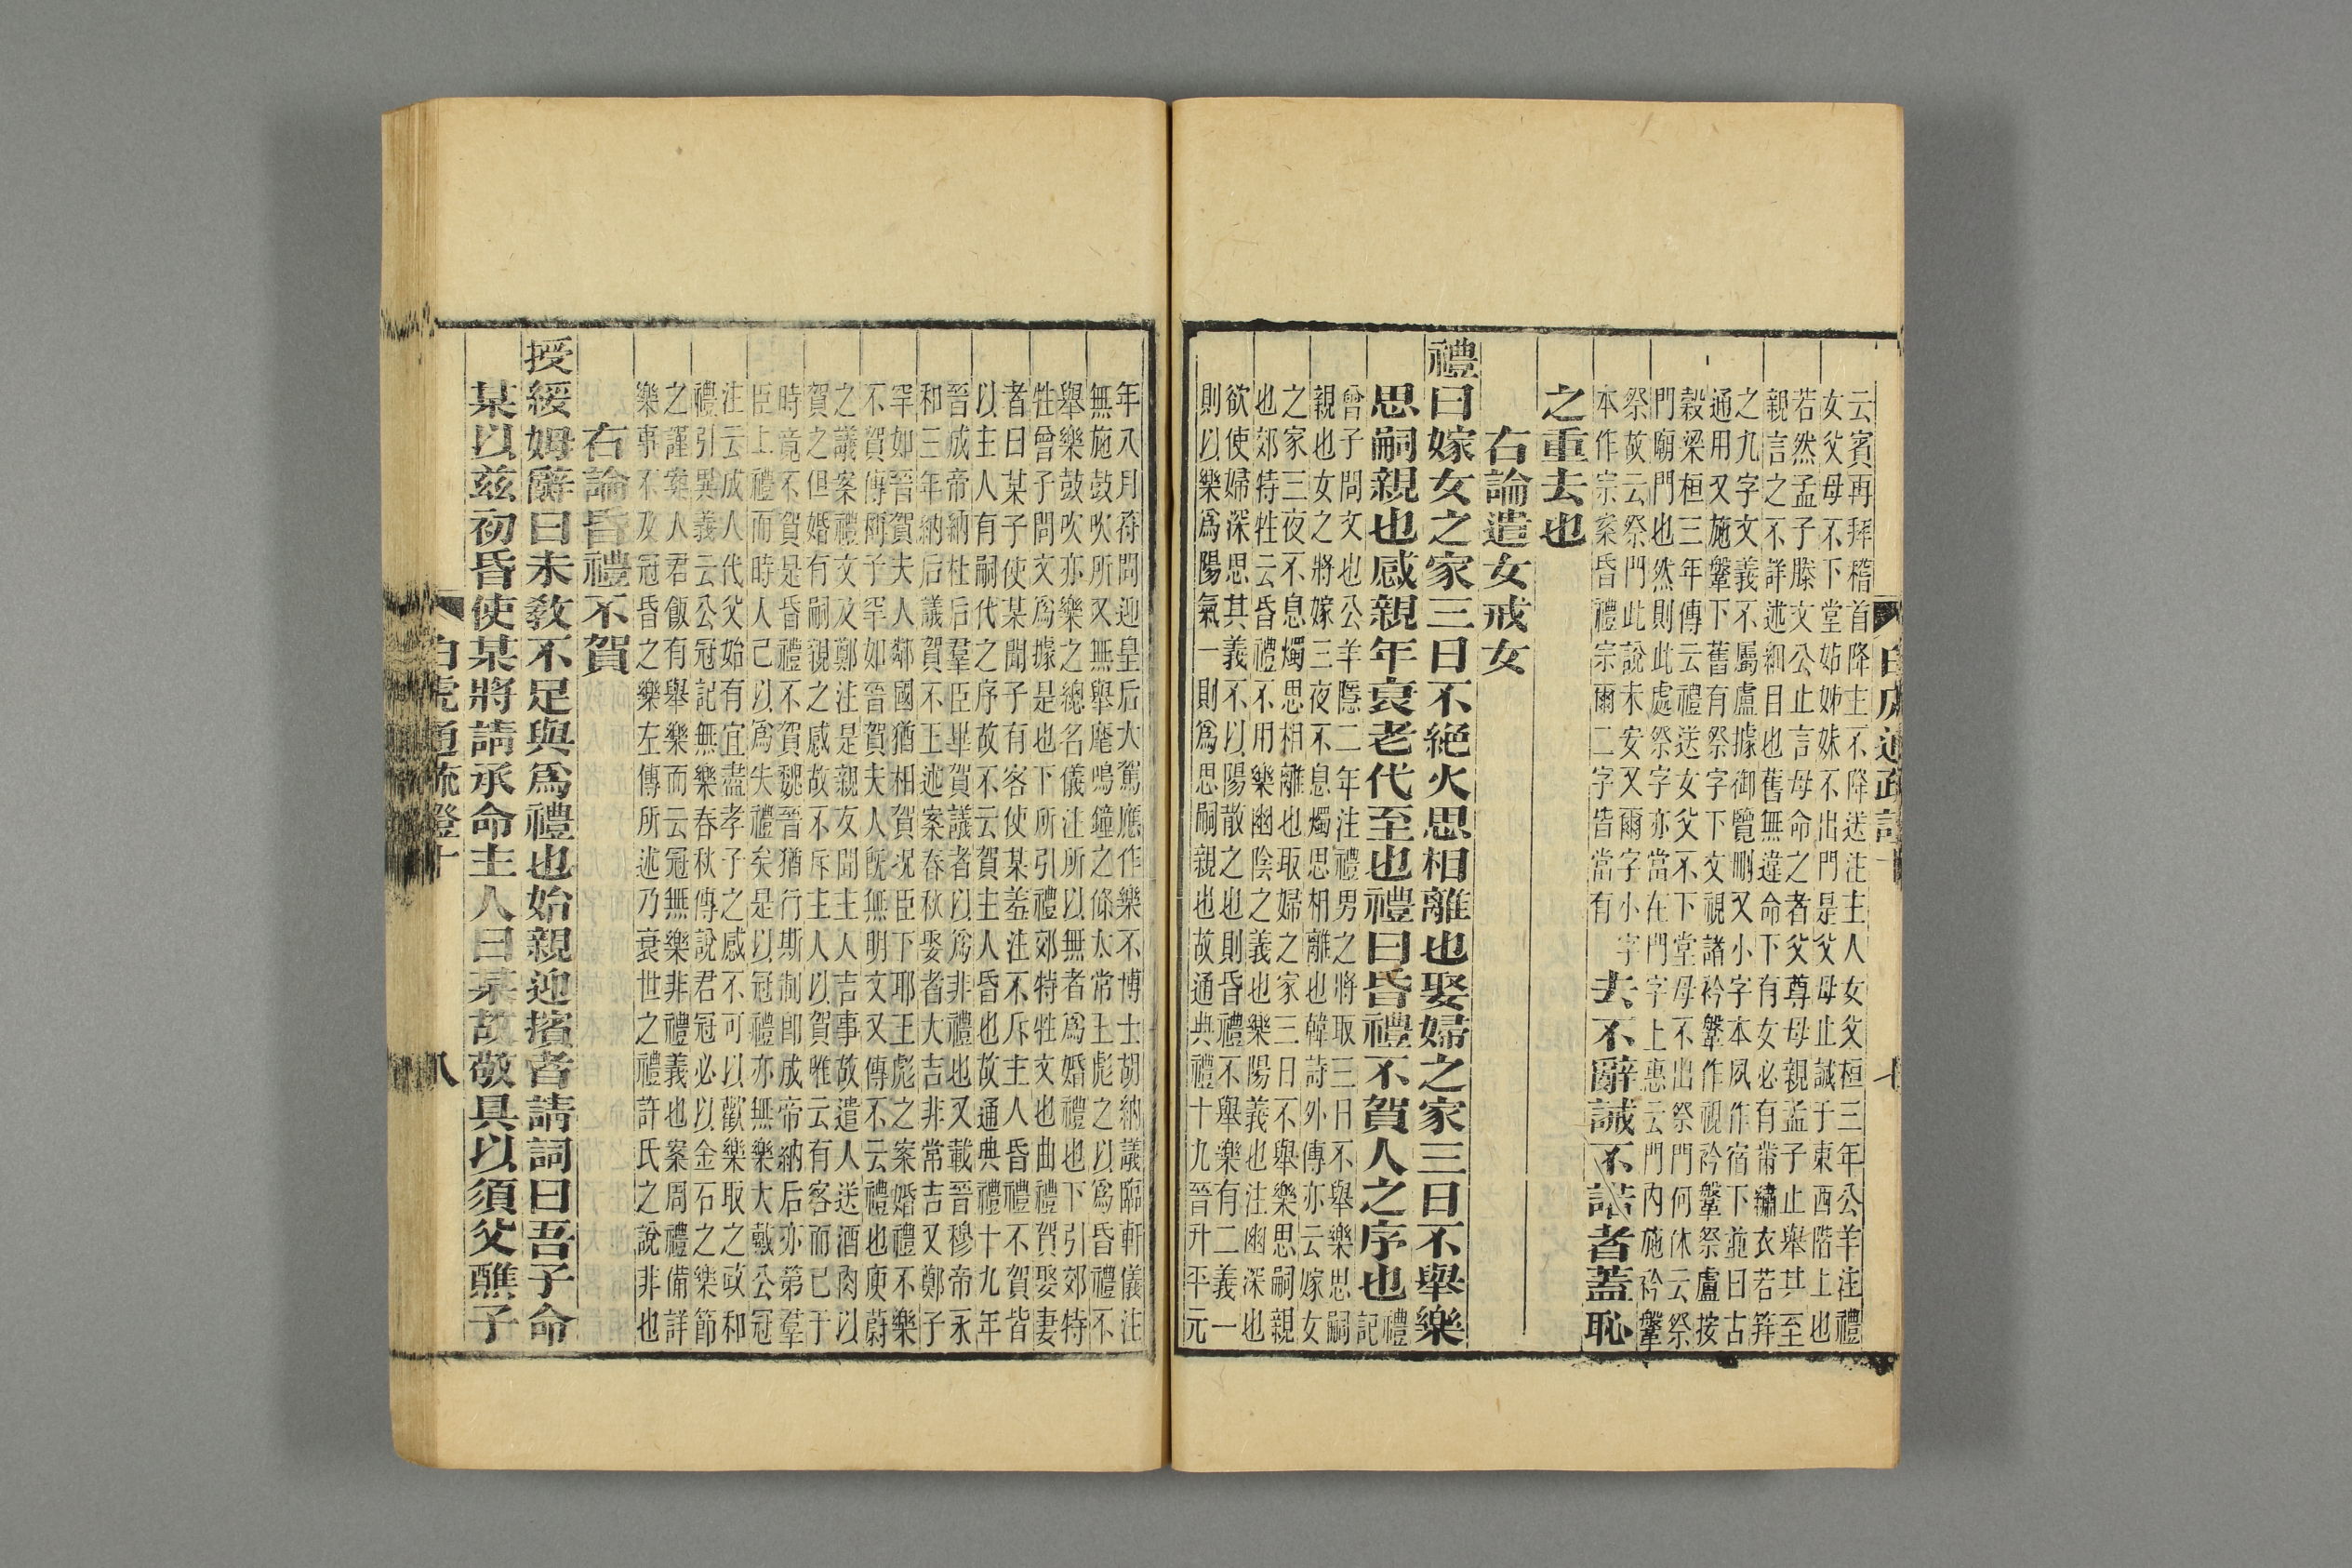 云賓再拜稽首降主不降送注主人女父桓三年公羊注禮
女父母不下堂姊妹不出門是父母止誡于東西階上也
若然孟子滕文公止言母命之者父尊母親孟子止舉其至
親言之不詳述細目也舊無違命下有女必有黹繡衣若笄
之九字文義不屬盧據御覽刪又小字本夙作宿下並曰古
通用又施鞶下舊有祭字下文視諸衿鞶作視衿鞶祭盧按
穀梁桓三年傳云禮送女父不下堂母不出祭門何休云祭
門廟門也然則此處祭字亦當在門字上惠云門內施衿鞶
祭故云祭門此說未安又爾字小字
本作宗案昏禮宗爾二字皆當有
去不辭誡不諾者蓋恥
之重去也
右論遣女戒女
禮曰嫁女之家三日不絕火思相離也娶婦之家三日不舉樂
思嗣親也感親年衰老代至也禮曰昏禮不賀人之序也
禮
記
曾子問文也公羊隱二年注禮男之將取三日不舉樂思嗣
親也女之將嫁三夜不息燭思相離也韓詩外傳亦云嫁女
之家三夜不息燭思相離也取婦之家三日不舉樂思嗣親
也郊特牲云昏禮不用樂幽陰之義也樂陽義也注幽深也
欲使婦深思其義不以陽散之也則昏禮不舉樂有二義一
則以樂爲陽氣一則爲思嗣親也故通典禮十九晉升平元
年八月符問迎皇后大駕應作樂不博士胡納議臨軒儀注
無施鼓吹所又無舉麾鳴鐘之條太常王彪之以爲昏禮不
舉樂鼓吹亦樂之總名儀注所以無者爲婚禮也下引郊特
牲曾子問文爲據是也下所引禮郊特牲文也曲禮賀娶妻
者曰某子使某聞子有客使某羞注不斥主人昏禮不賀皆
以主人有嗣代之序故不云賀主人昏也故通典禮十九年
晉成帝納杜后羣臣畢賀議者以爲非禮也又載晉穆帝永
和三年納后議賀不王述案春秋娶者大吉非常吉又鄭子
罕如晉賀夫人鄰國猶相賀況臣下耶王彪之案婚禮不樂
不賀傳偁子罕如晉賀夫人旣無明文又傳不云禮也庾蔚
之議案禮文及鄭注足親女聞主人吉事故遣人送酒肉以
賀之但婚有嗣親之感故不斥主人以賀唯云有客而已于
時竟不賀是昏禮不賀魏晉猶行斯制卽成帝納后亦第羣
臣上禮而時人已以爲失禮矣是以冠禮亦無樂大戴公冠
注云成人代父始有宜盡孝子之感不可以歡樂取之政和
禮引異義云公冠記無樂春秋傳說君冠必以金石之樂節
之謹案人君飯有舉樂而云冠無樂非禮義也案周禮備詳
樂事不及冠昏之樂左傳所述乃衰世之禮許氏之說非也
右論昏禮不賀
授綏姆辭曰未敎不足與爲禮也始親迎擯者請詞曰吾子命
某以茲初昏使某將請承命主人曰某故敬具以須父醮子
白虎通疏證十
八